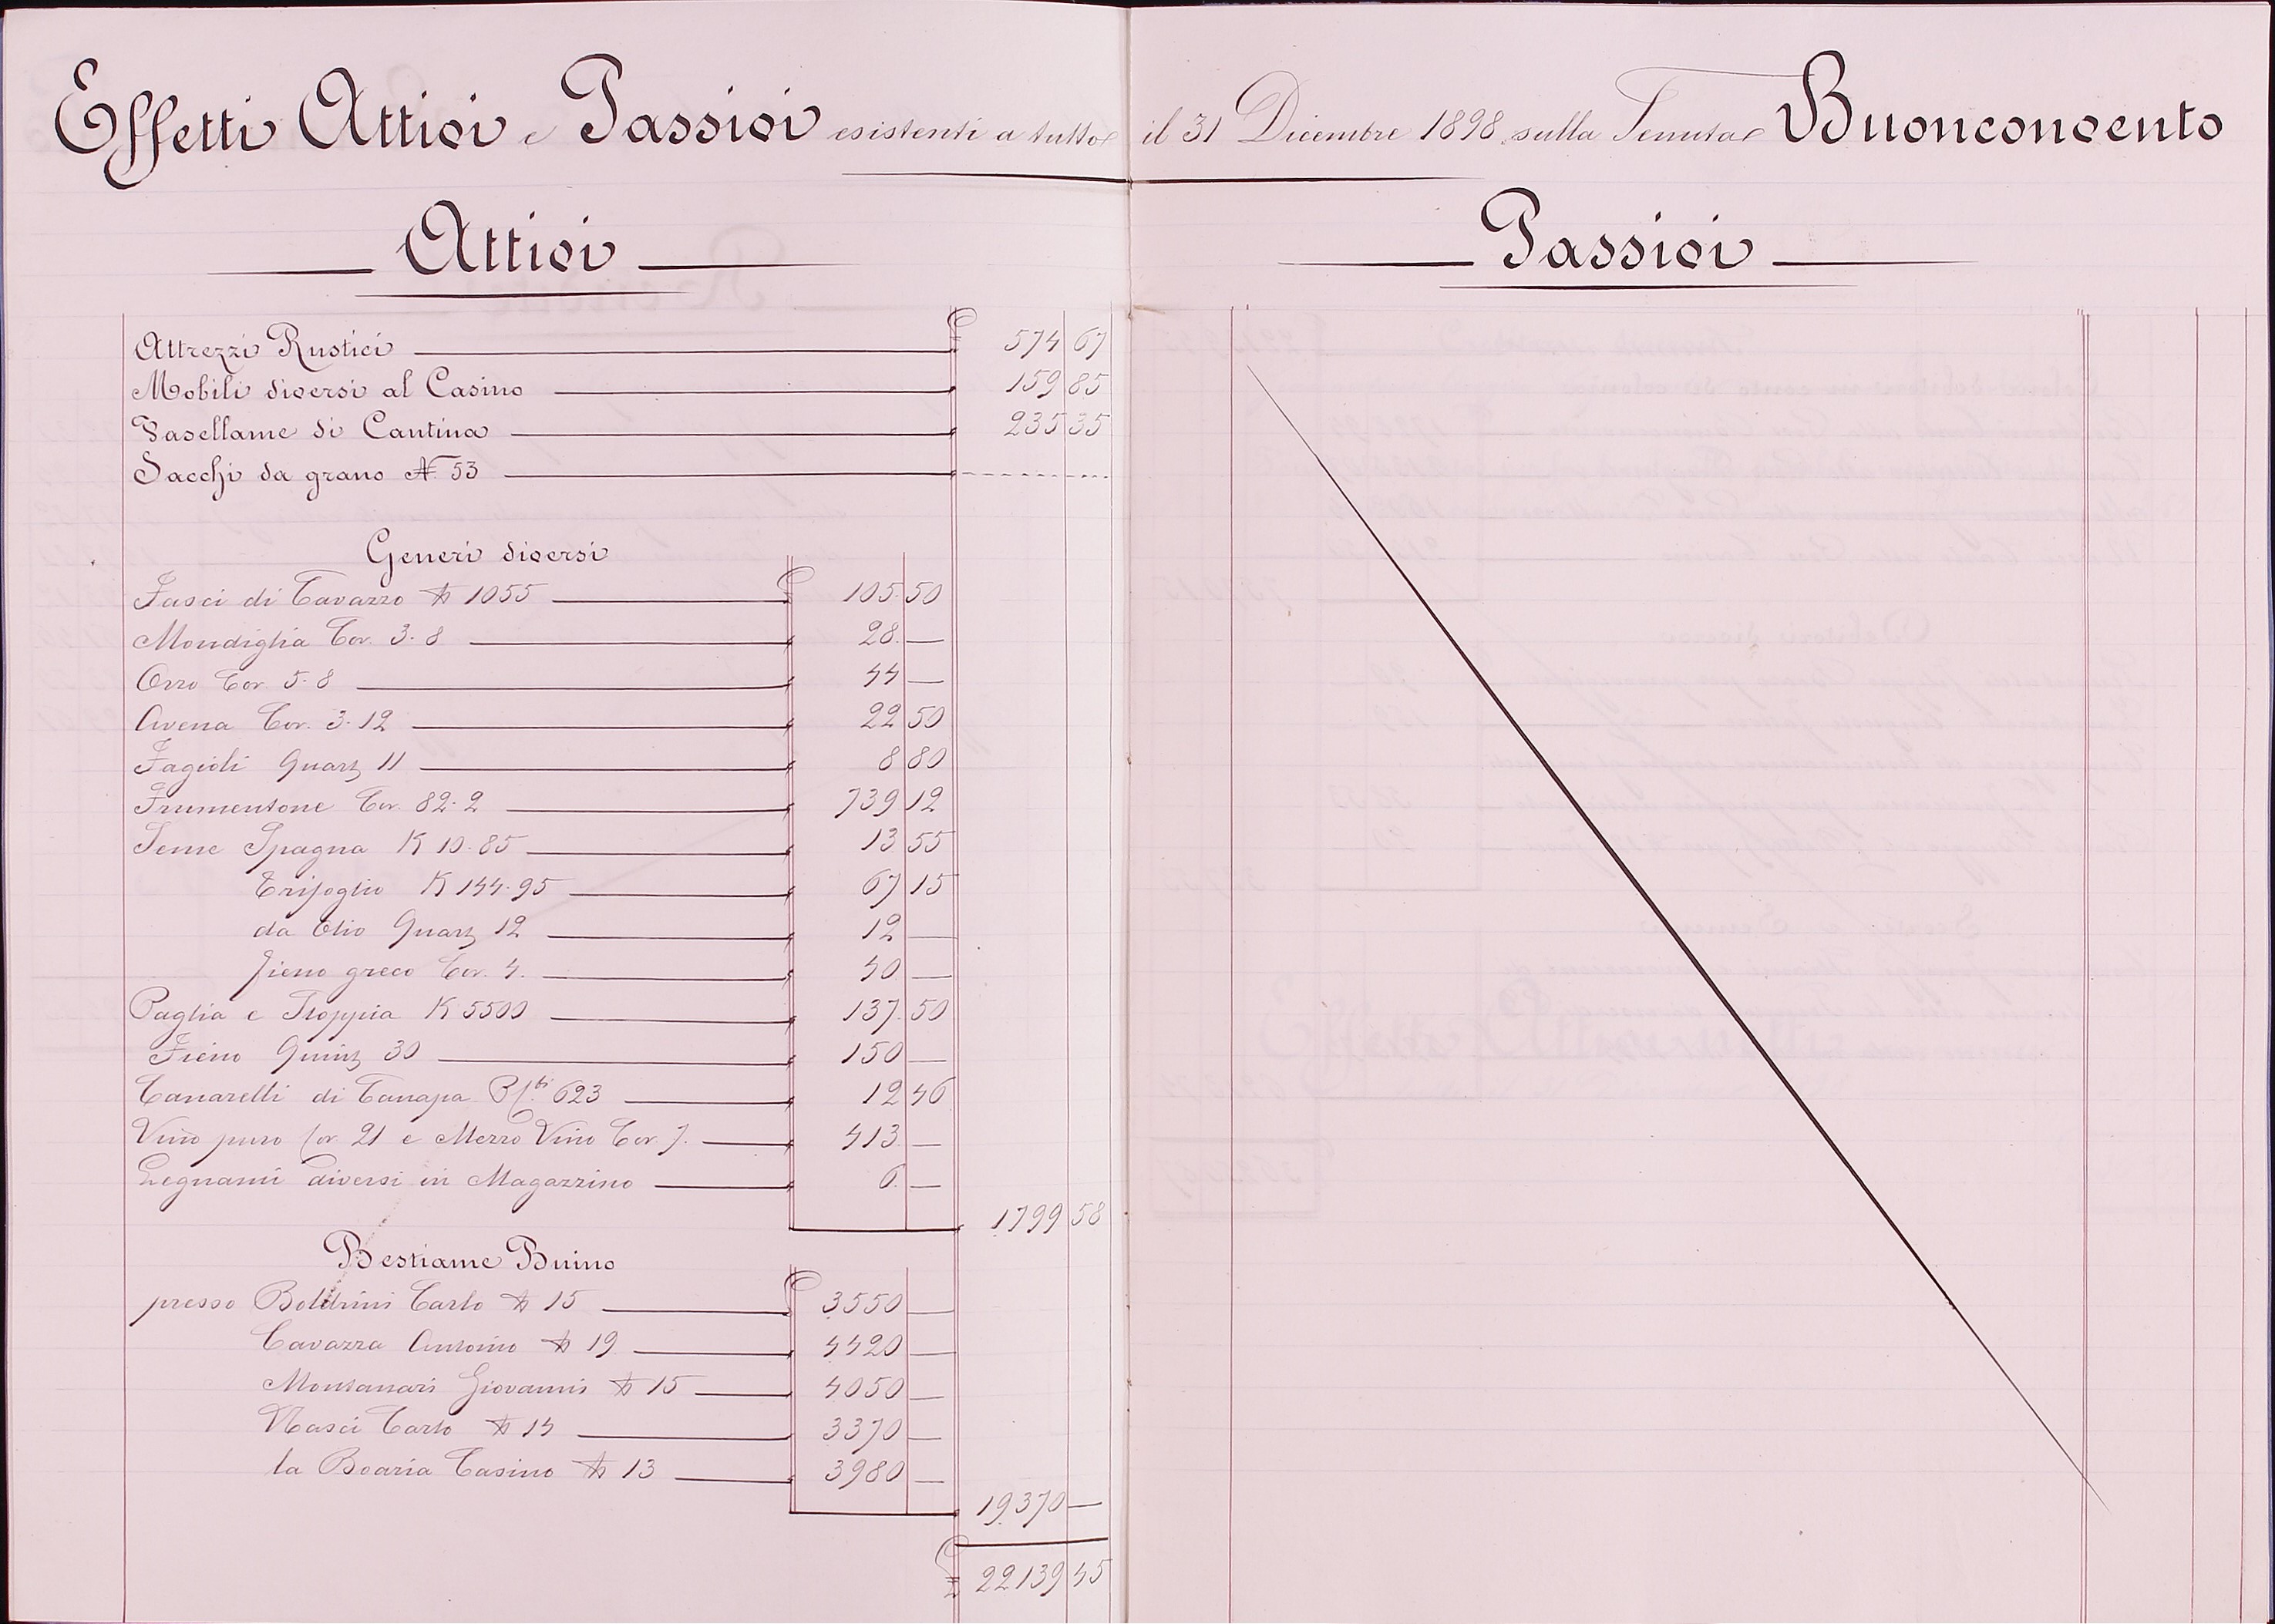 Effetti Attivi e Passivi esistenti a tutto il 31 Dicembre 1898 sulla Tenuta Buonconvento
Attivi
Attrezzi Rustici £ 574 67
Mobili diversi al Casino 159 85
Vasellame di Cantina 235 35
Sacchi da grano N. 53
Generi diversi
Fasci di Cavazzo N 1055 £ 105 50
Mondiglia Cor. 3-8 28 —
Orzo Cor. 5-8 44 —
Avena Cor. 3-12 22 50
Fagioli Quart 11 8 80
Frumentone Cor. 82-2 739 12
Seme Spagna K 10-85 13 55
Trifoglio K 144-95 67 15
da Olio Quart 12 12 —
fieno greco Cor. 4. 40 —
Paglia e Stoppia K 5500 137 50
Fieno Quint 30 150 —
Canarelli di Canapa 623 12 46
Vino puro Cor 21 e Mezzo Vino Cor 7. 413 —
Legnami diversi in Magazzino 6 —
1799 58
Bestiame Buino
presso Boldrini Carlo N 15 £ 3550 —
Cavazza Antonio N 19 4420 —
Montanari Giovanni N 15 4050 —
Nasci Carlo N 14 3370 —
la Boaria Casino N 13 3980 —
19370 —
£ 22139 45
Passivi